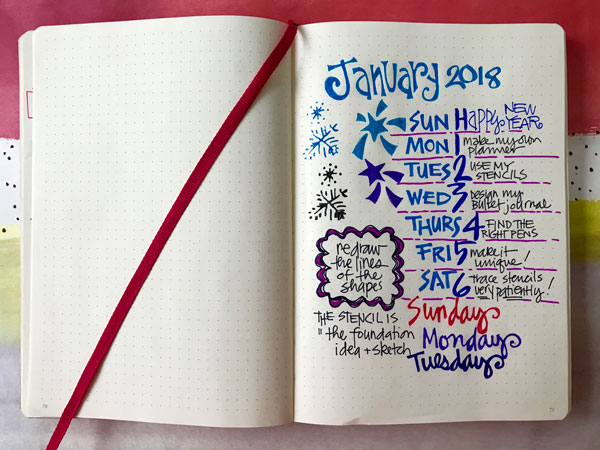 January 2018
SUN Happy NEW YEAR
MON 1 make my own planner
TUES 2 USE MY STENCILS
WED 3 design my bullet journal
THURS 4 FIND THE RIGHT PENS
FRI 5 make it unique!
SAT 6 trace stencils very patiently!
redraw
the lines
of the
shapes
Sunday
Monday
Tuesday
THE STENCIL IS
"the foundation
idea + sketch